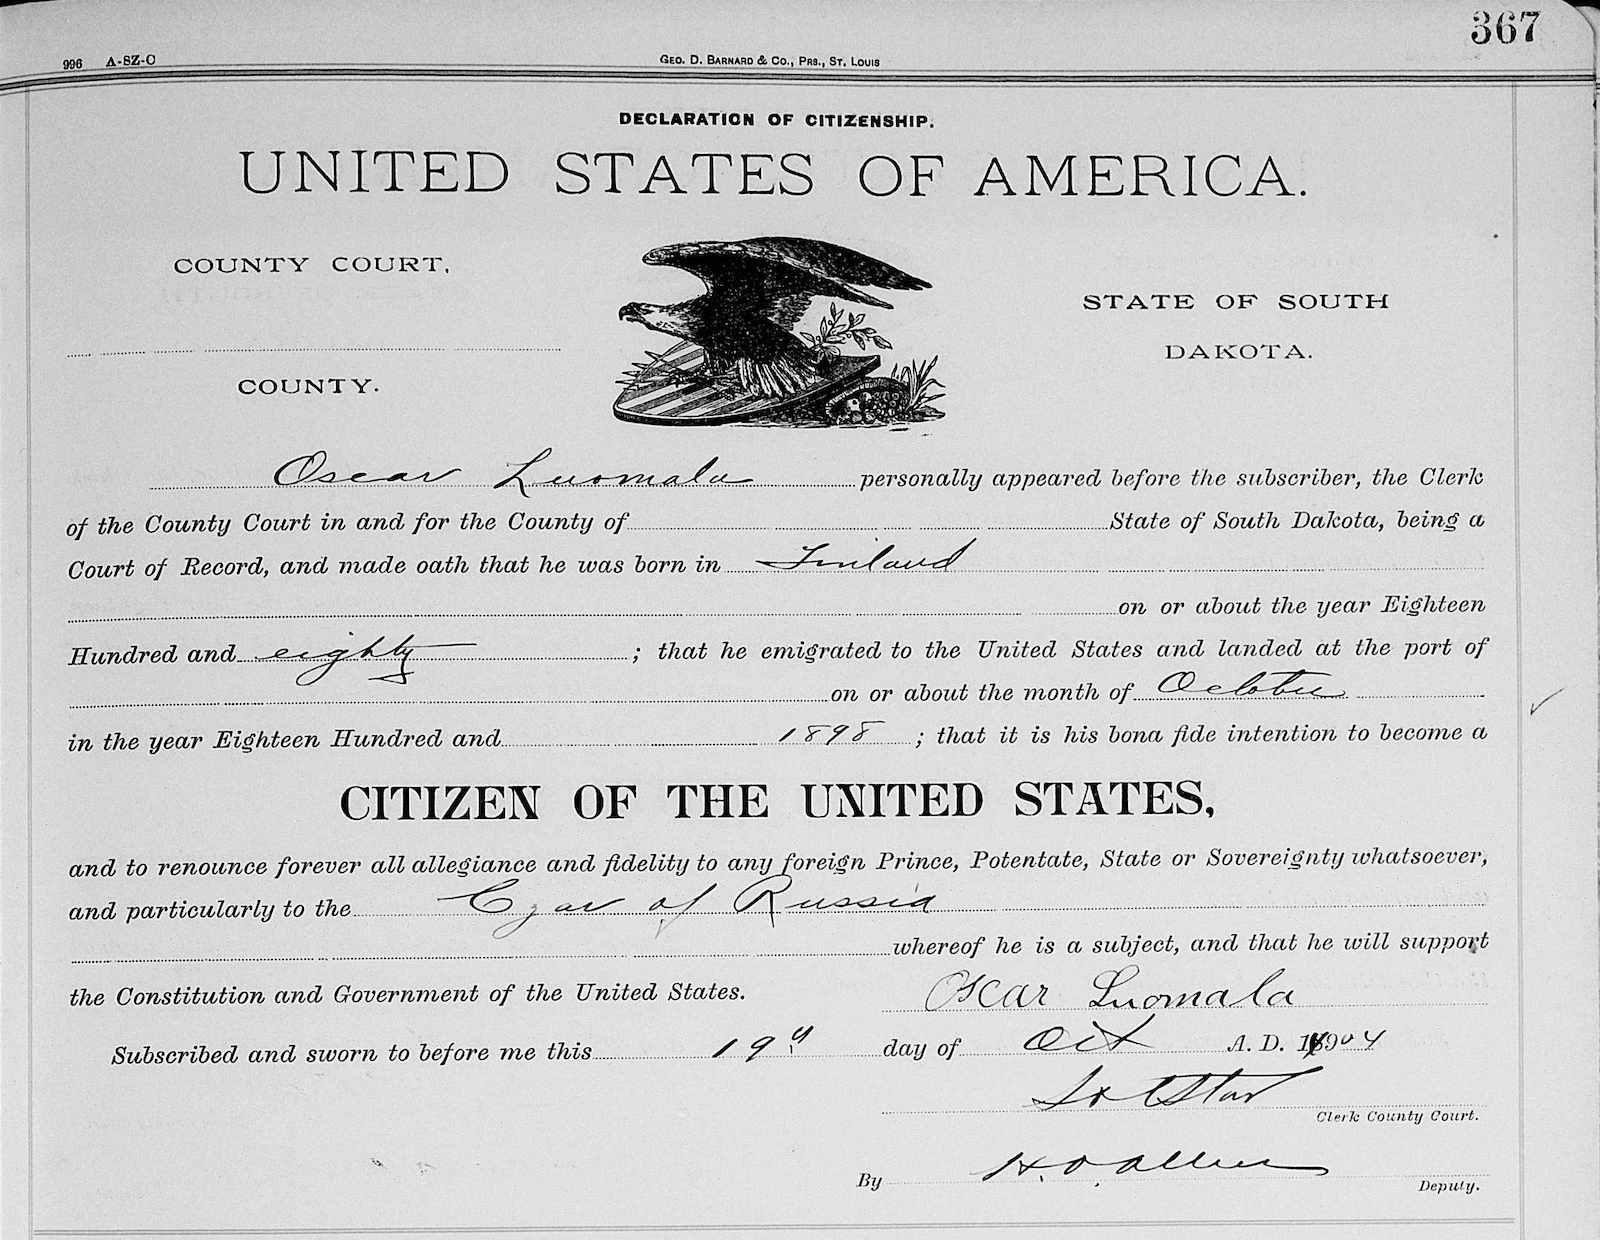 367
996 A-SZ-O
GEO. D. BARNARD & CO., PRS., ST. LOUIS
DECLARATION OF CITIZENSHIP.
UNITED STATES OF AMERICA.
COUNTY COURT,
COUNTY.
STATE OF SOUTH
DAKOTA.
Oscar Luomala personally appeared before the subscriber, the Clerk
of the County Court in and for the County of State of South Dakota, being a
Court of Record, and made oath that he was born in Finland
on or about the year Eighteen
Hundred and eighty ; that he emigrated to the United States and landed at the port of
on or about the month of October
in the year Eighteen Hundred and 1898 ; that it is his bona fide intention to become a
CITIZEN OF THE UNITED STATES,
and to renounce forever all allegiance and fidelity to any foreign Prince, Potentate, State or Sovereignty whatsoever,
and particularly to the Czar of Russia
whereof he is a subject, and that he will support
the Constitution and Government of the United States.
Oscar Luomala
Subscribed and sworn to before me this 19 day of Oct A. D. 1904
Clerk County Court.
By H. O.
Deputy.